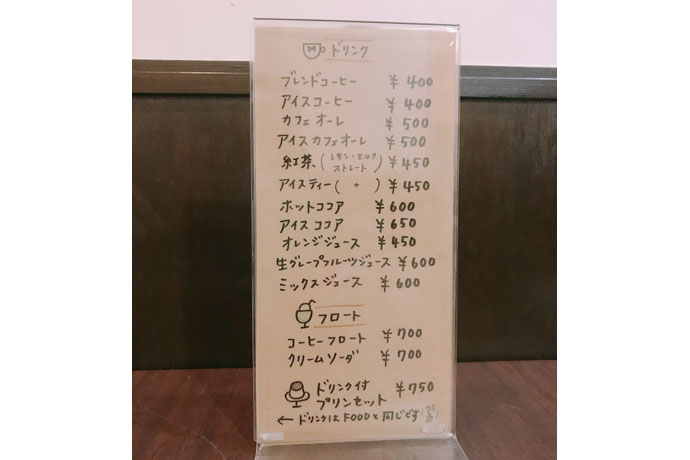 ドリンク
ブレンドコーヒー ¥400
アイスコーヒー ¥400
カフェオーレ ¥500
アイスカフェオーレ ¥500
紅茶(レモン・ミルク ストレート) ¥450
アイスティー(〃) ¥450
ホットココア ¥600
アイスココア ¥650
オレンジジュース ¥450
生グレープフルーツジュース ¥600
ミックスジュース ¥600
フロート
コーヒーフロート ¥700
クリームソーダ ¥700
ドリンク付 ¥750
プリンセット
← ドリンクはFOODと同じです